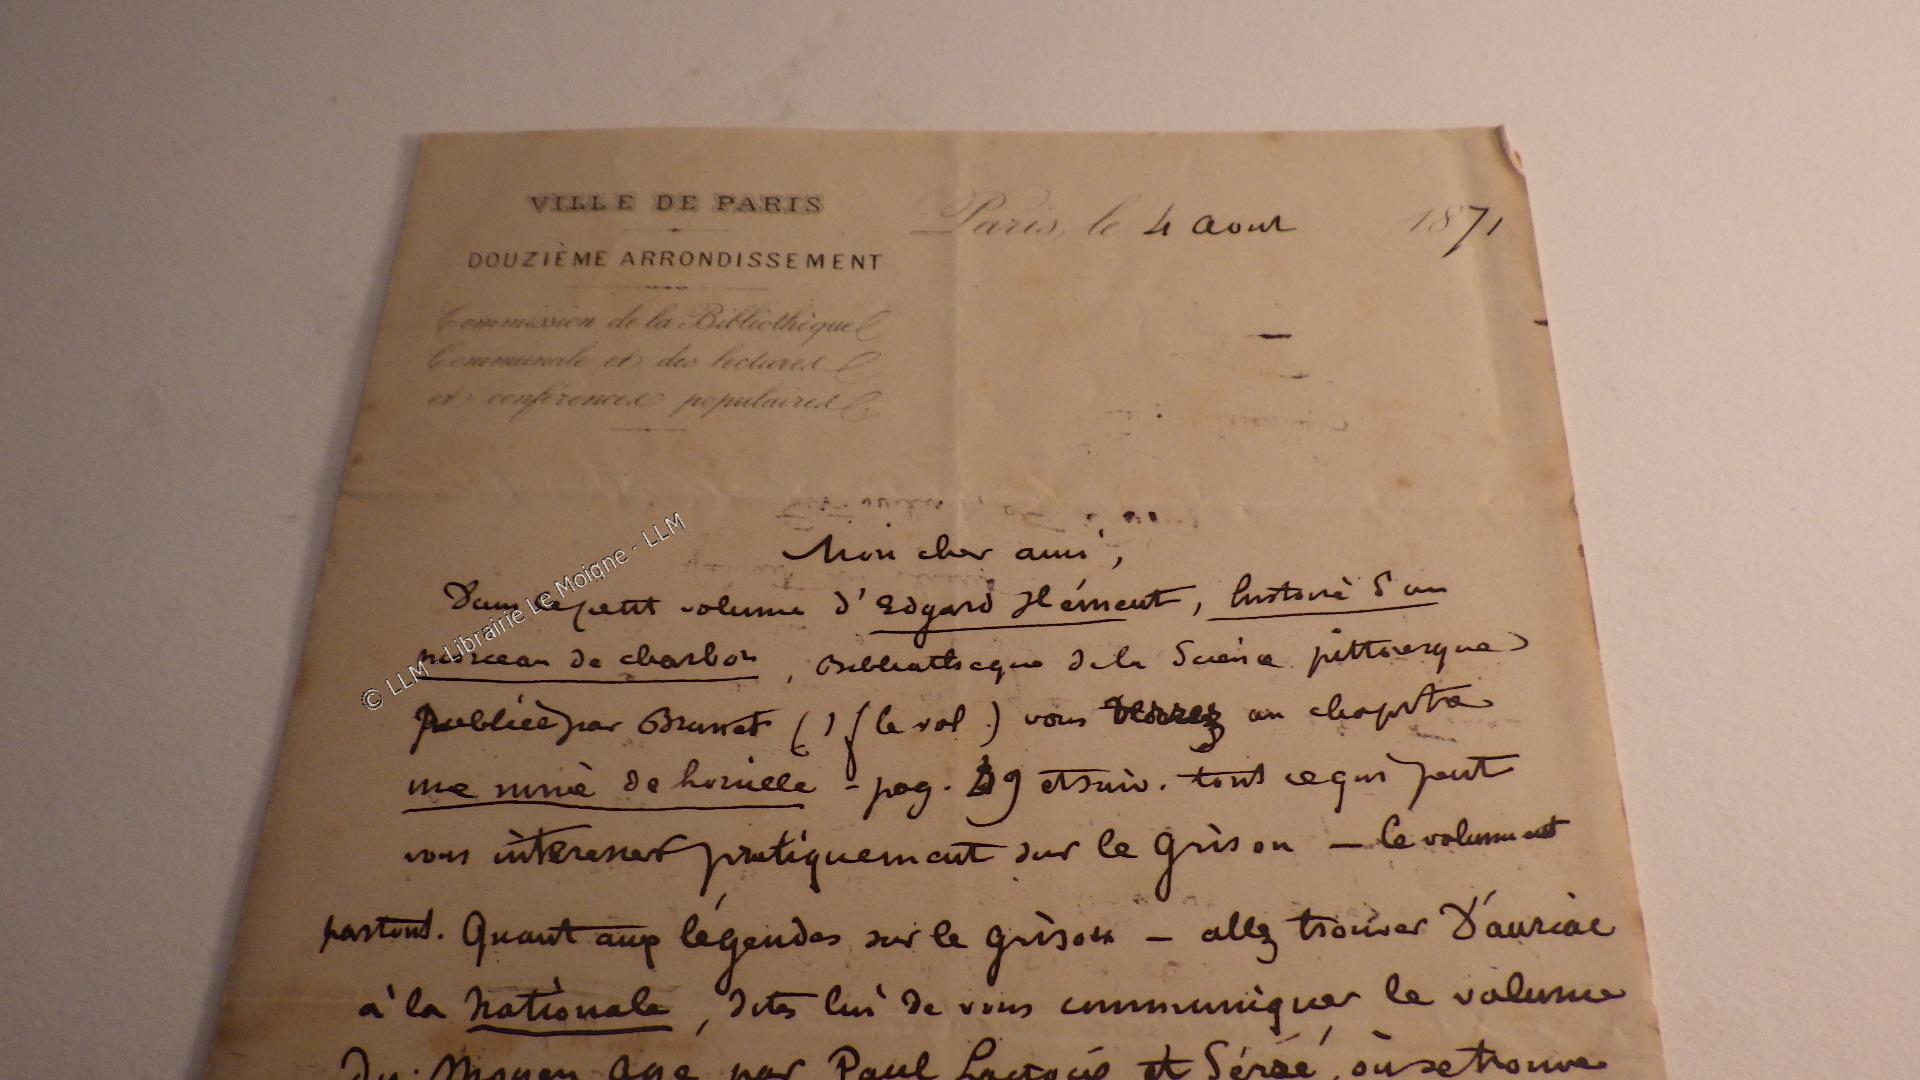 VILLE DE PARIS
DOUZIÈME ARRONDISSEMENT
Commission de la Bibliothèque
Communale et des lectures
et conférences populaires
Paris, le 4 aout 1871
Mon cher ami,
Dans ce petit volume d'Edgard Hément, histoire d'un
morceau de charbon, Bibliothèque de la Science pittoresque
publiée par Brunet (1f le vol.) vous verrez au chapitre
une mine de houille - pag. 59 et suiv. tout ce qui peut
vous intéresser pratiquement sur le grisou - le volume est
partout. Quant aux légendes sur le grisou - allez trouver D'auriac
à la Nationale, dites lui de vous communiquer le volume
du Moyen age par Paul Lacroix et Séré, où se trouve
© LLM - Librairie Le Moigne - LLM